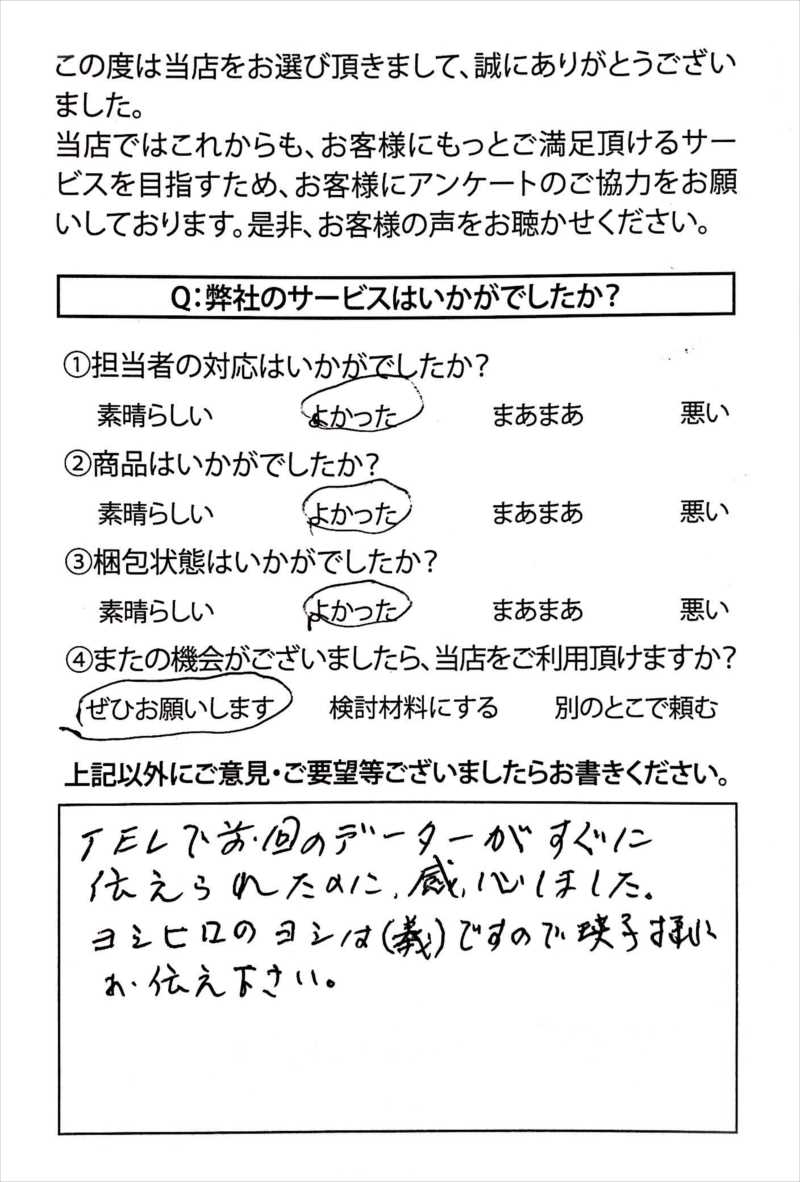 この度は当店をお選び頂きまして、誠にありがとうござい
ました。
当店ではこれからも、お客様にもっとご満足頂けるサー
ビスを目指すため、お客様にアンケートのご協力をお願
いしております。是非、お客様の声をお聴かせください。
Q：弊社のサービスはいかがでしたか？
①担当者の対応はいかがでしたか？
素晴らしい よかった まあまあ 悪い
②商品はいかがでしたか？
素晴らしい よかった まあまあ 悪い
③梱包状態はいかがでしたか？
素晴らしい よかった まあまあ 悪い
④またの機会がございましたら、当店をご利用頂けますか？
ぜひお願いします 検討材料にする 別のとこで頼む
上記以外にご意見・ご要望等ございましたらお書きください。
TELで前回のデーターがすぐに
伝えられたのに、感心しました。
ヨシヒロのヨシは(義)ですので 子様に
お伝え下さい。